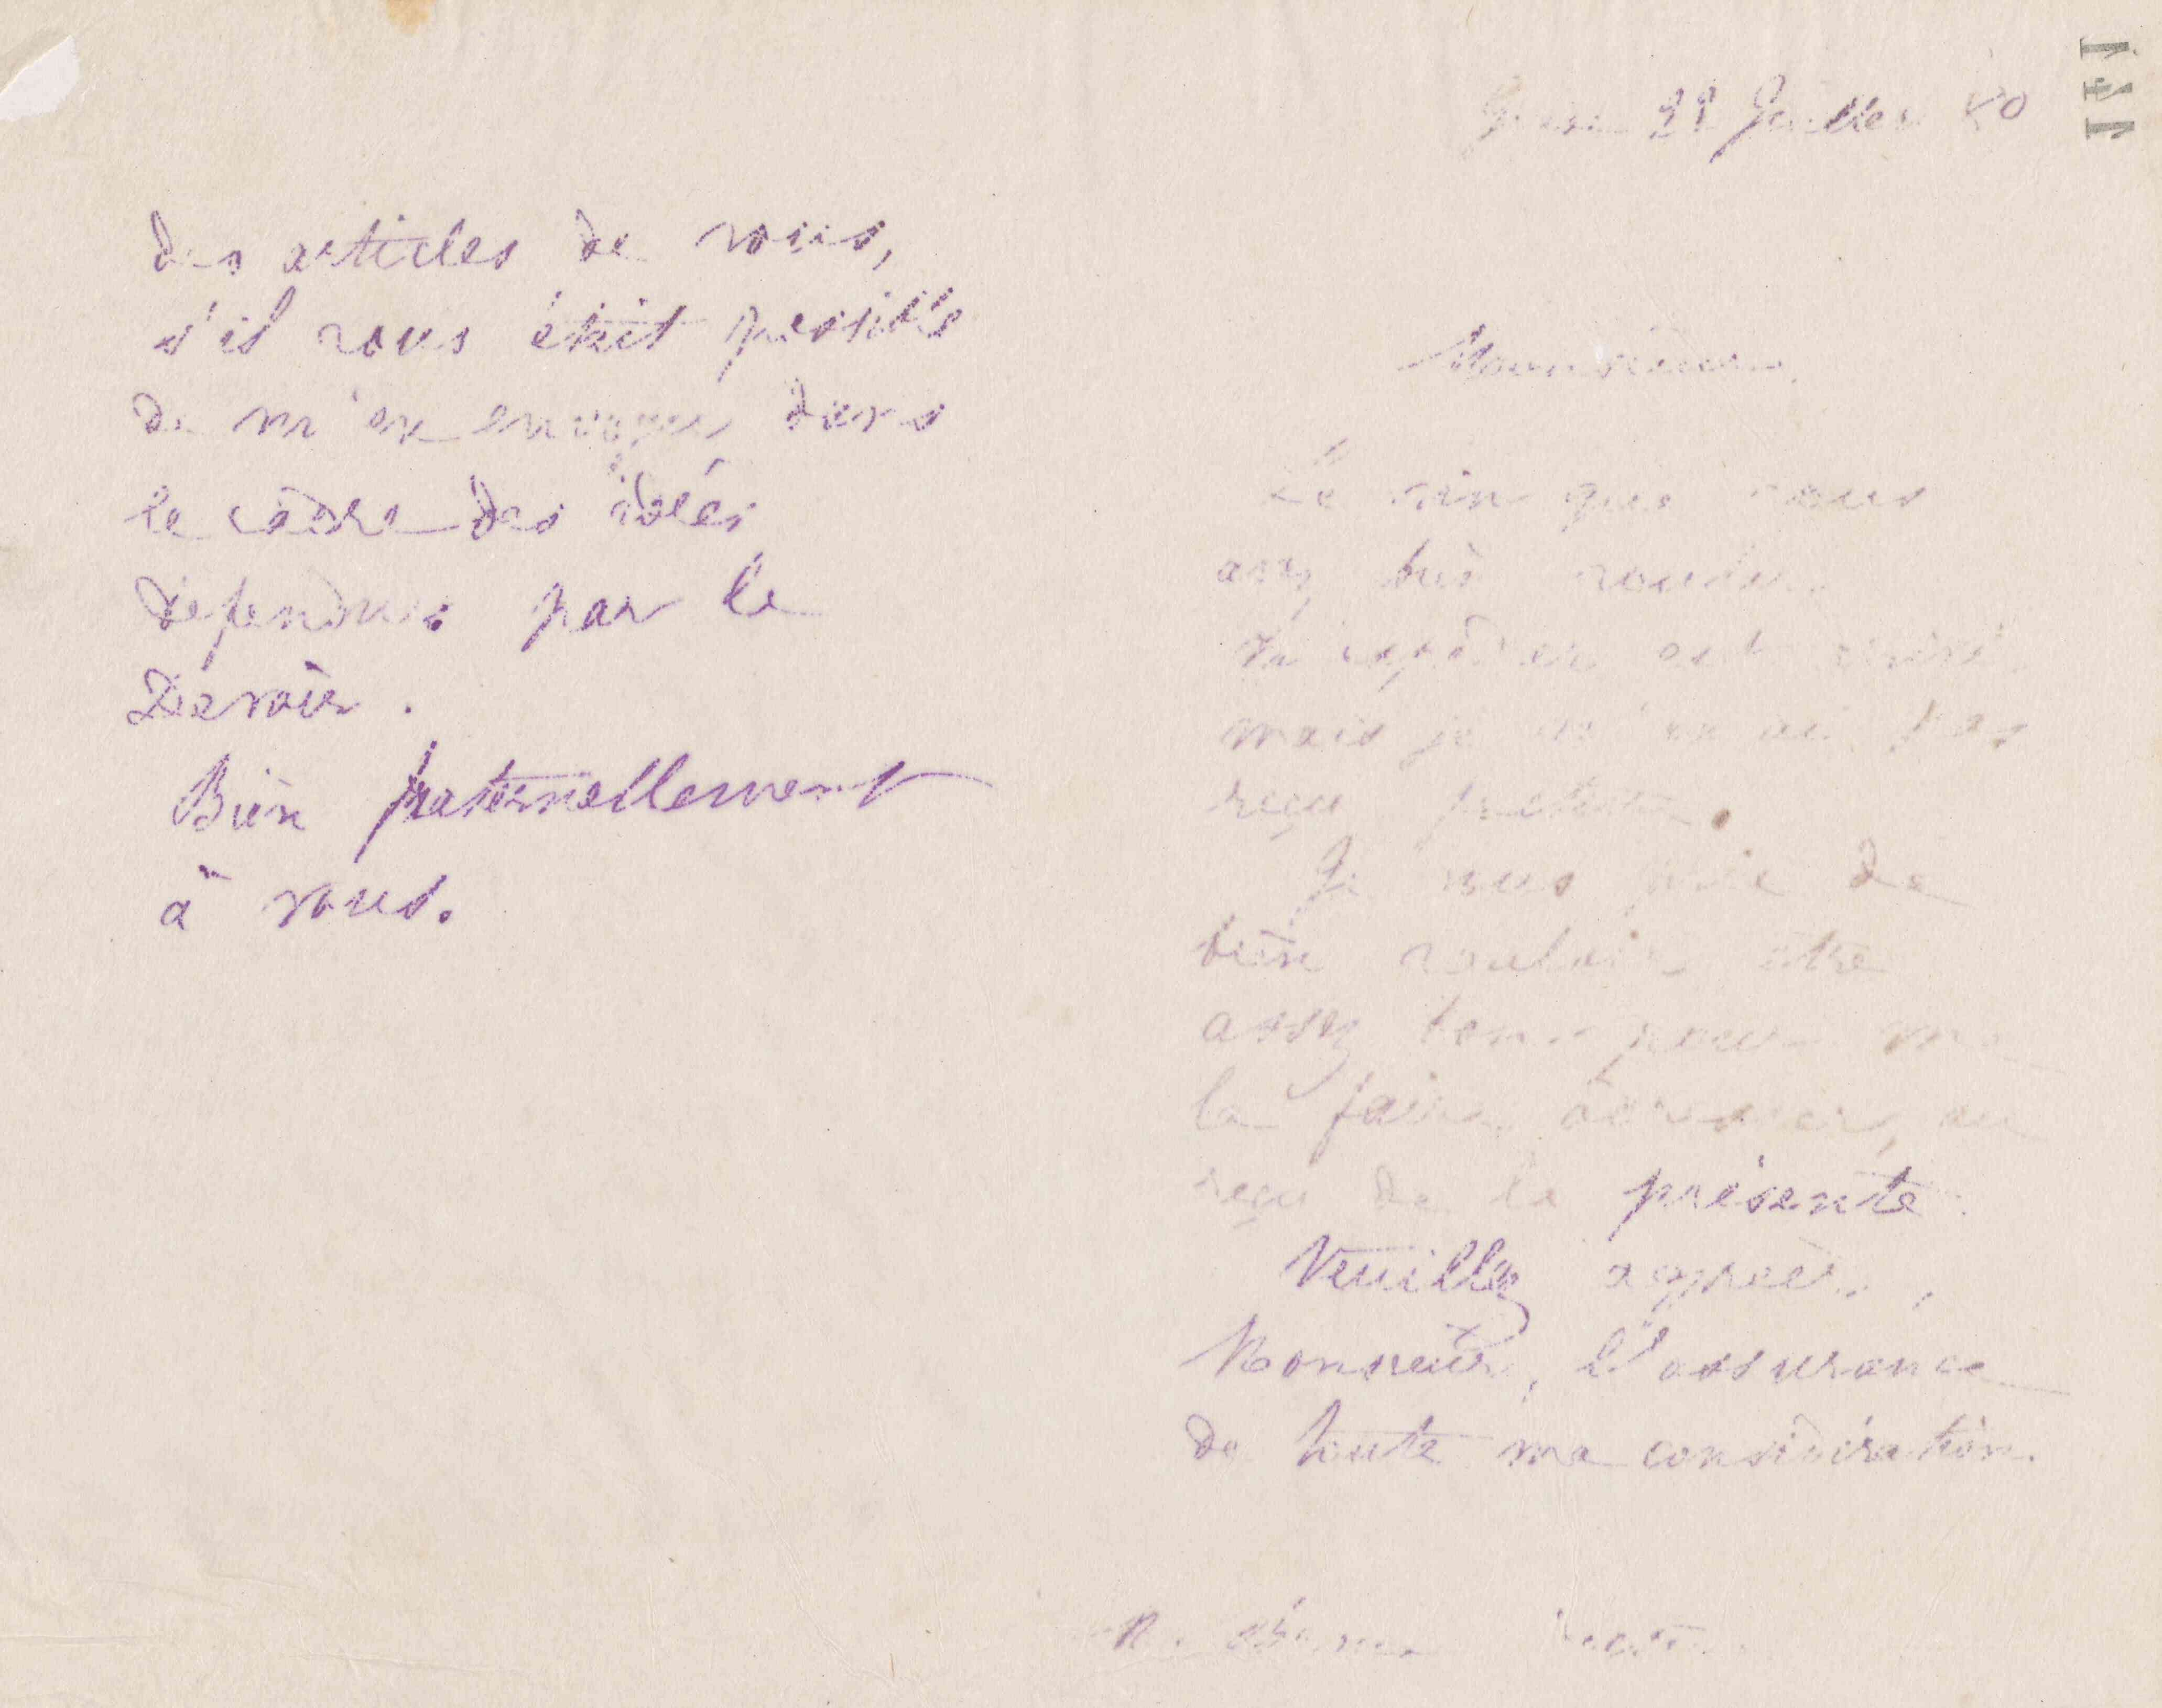 des articles de vous,
s'il vous était possible
de m'en envoyer dans
le cadre des idées
défendues par le
Devoir.
Bien fraternellement
à vous.
Guise 22 Juillet 80
Monsieur,
Le vin que vous
avez bien voulu
m'expédier est arrivé
mais je n'en ai pas
reçu facture.
Je vous prie de
bien vouloir être
assez bon pour me
la faire adresser, au
reçu de la présente.
Veuillez agréer,
Monsieur, l'assurance
de toute ma considération.